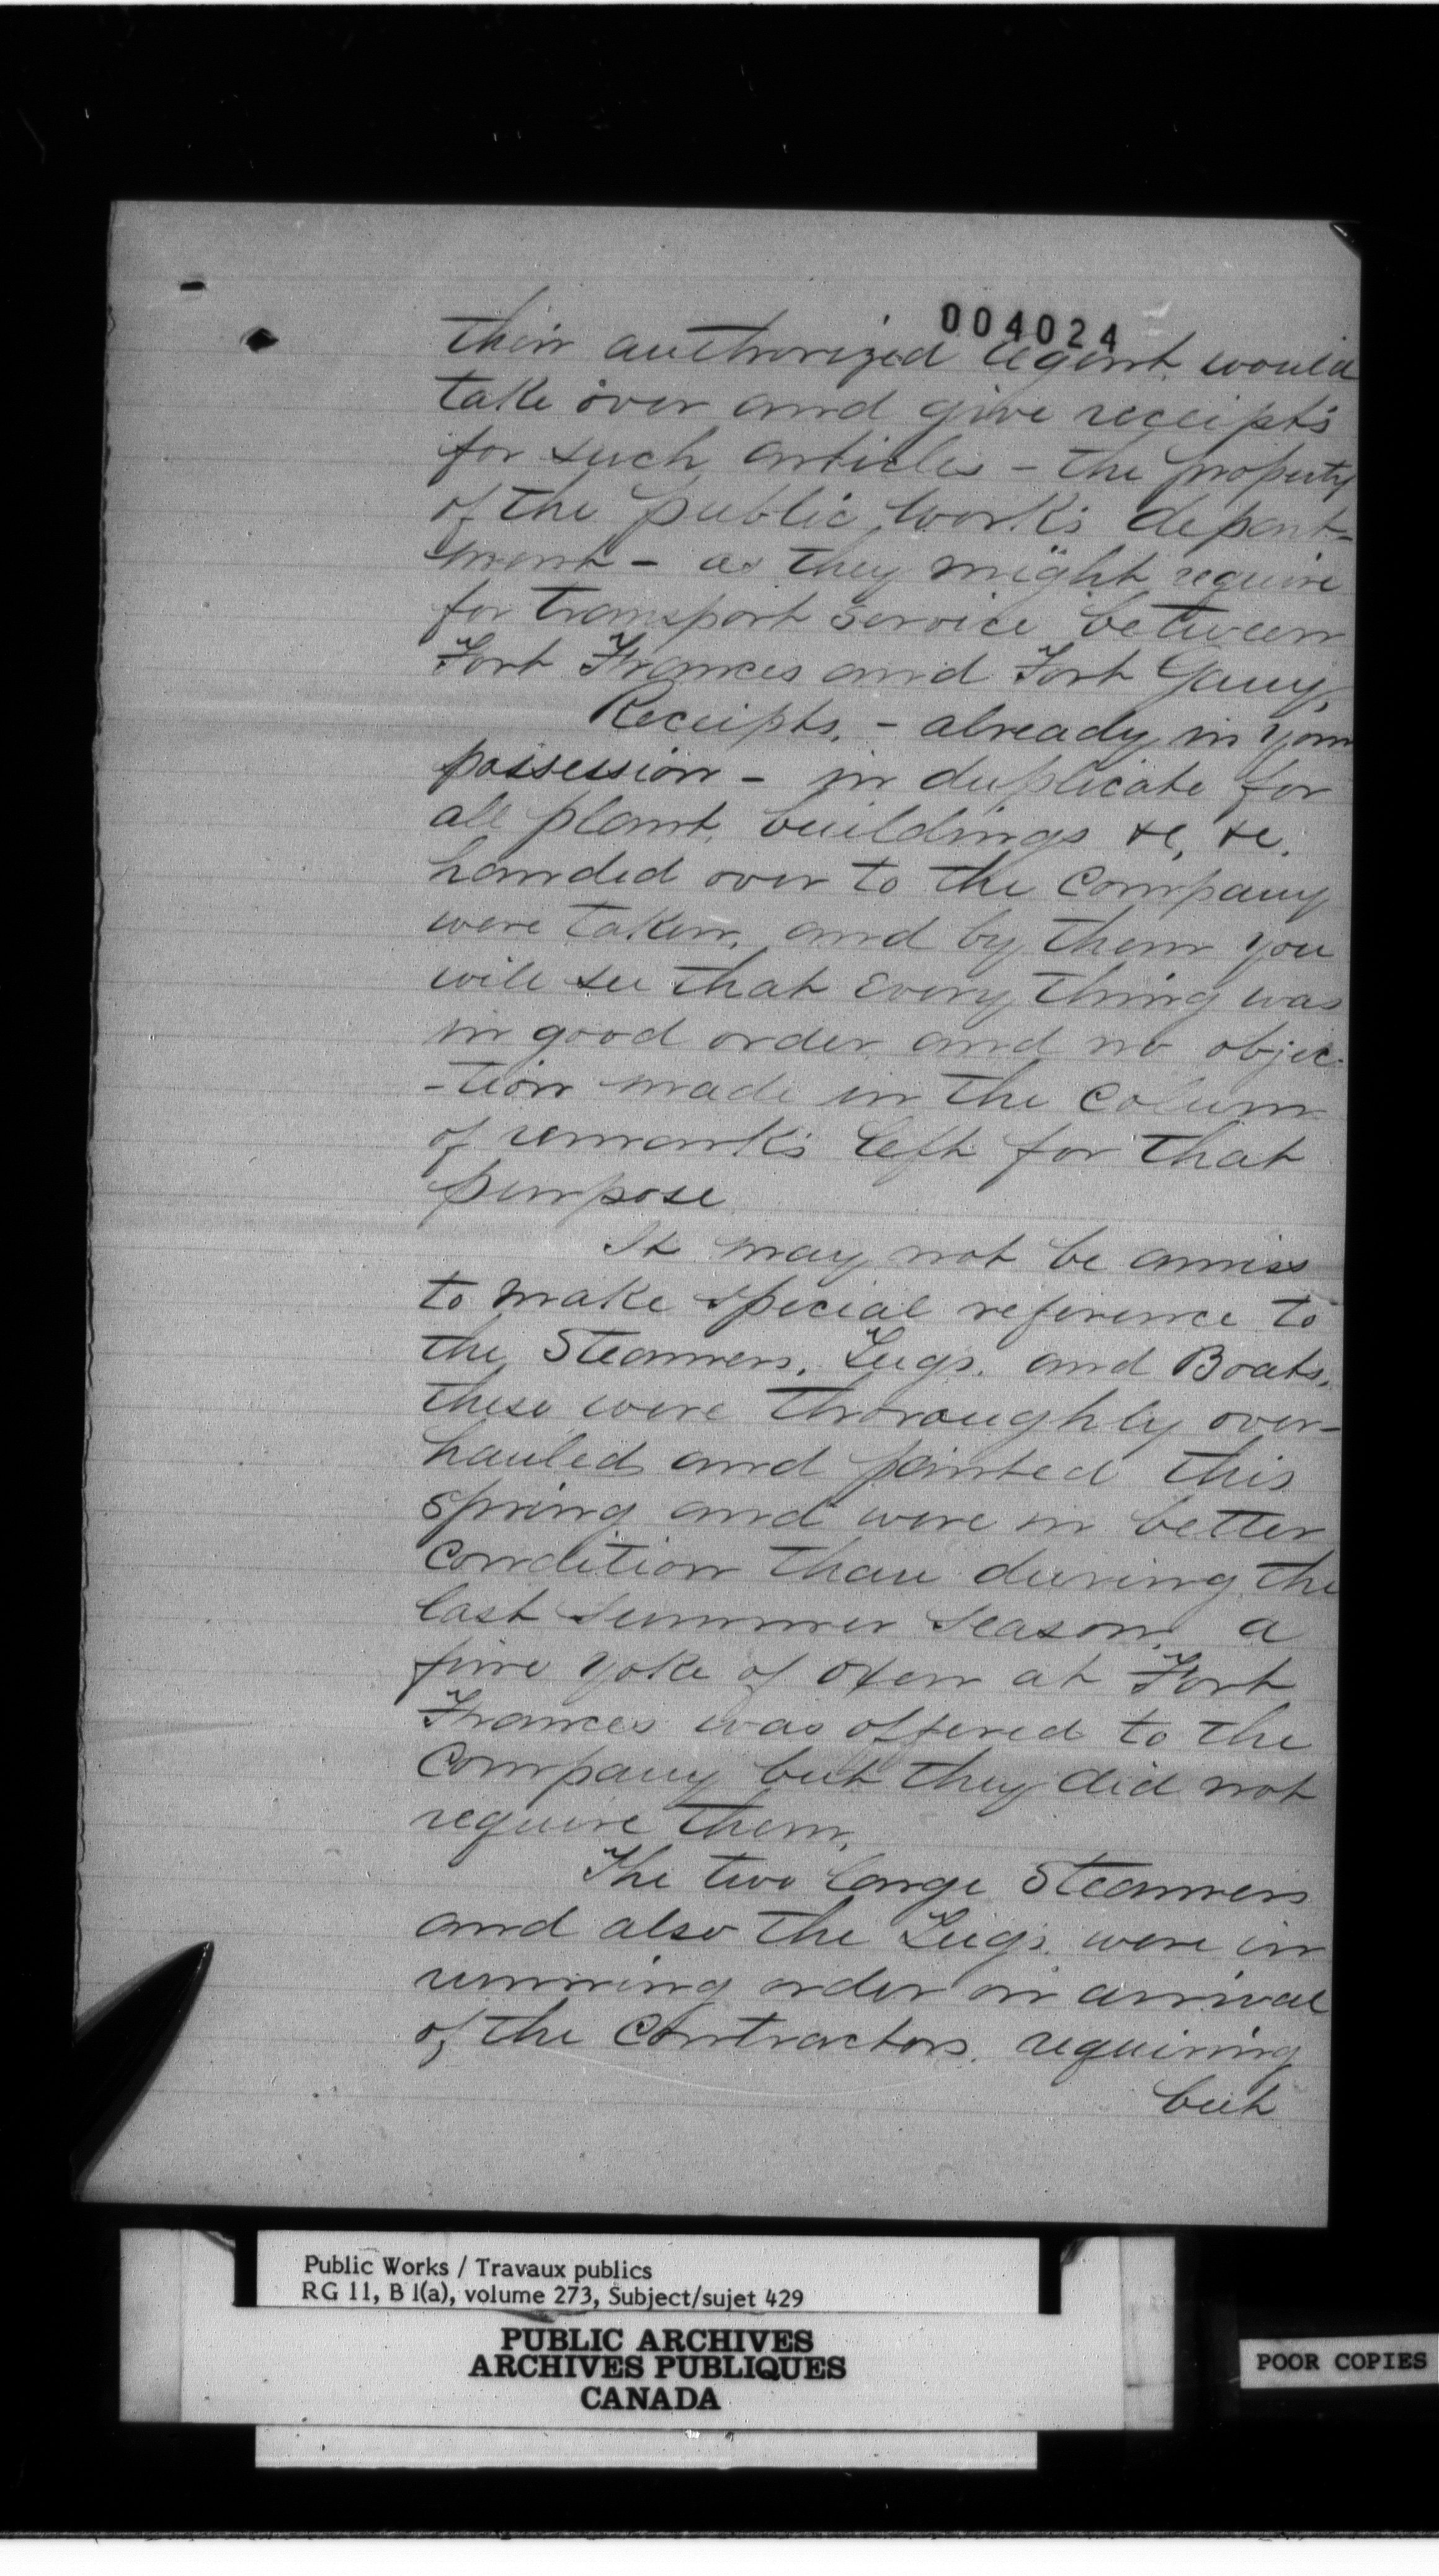 004024
their authorized agent would
take over and give receipts
for such articles - the property
of the public works depart-
ment - as they might require
for transport service between
Fort Frances and Fort Garry.
Receipts, - already in your
possession - in duplicate for
all plant, buildings &c, &c.
handed over to the Company
were taken, and by them you
will see that every thing was
in good order and no objec-
-tion made in the Column
of remarks left for that
purpose
It may not be amiss
to make special reference to
the Steamers, Tugs, and Boats,
these were thoroughly over-
hauled and painted this
spring and were in better
condition than during the
last summer season. a
fine yoke of oxen at Fort
Frances was offered to the
Company but they did not
require them.
The two large Steamers
and also the Tugs were in
running order on arrival
of the Contractors, requiring
but
Public Works / Travaux publics
RG 11, B 1(a), volume 273, Subject/sujet 429
PUBLIC ARCHIVES
ARCHIVES PUBLIQUES
CANADA
POOR COPIES